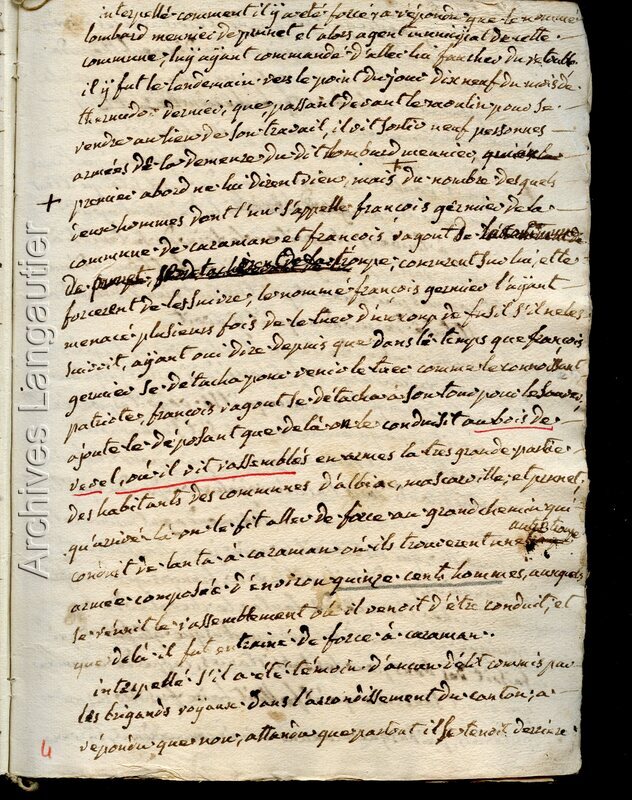 interpellé comment il y a été forcé, a répondu que le nommé
lombard meunier de prunet et alors agent municipal de cette
commune, luy ayant commandé d'aller lui faucher du
il y fut le lendemain vers le point du jour dix neuf du mois de
thermidor dernier; que, passant devant le moulin pour se
rendre au lieu de son travail, il vit sortir neuf personnes
armées de la demeure du dit lombard meunier,
premier abord ne lui dirent rien, mais + du nombre desquels
+ deux hommes dont l'un s'appelle françois germier de la
commune de caraman et françois ragout de
de prunet, troupe; coururent sur lui, et le
forcerent de les suivre; le nommé françois germier l'ayant
menacé plusieurs fois de le tuer d'un coup de fusil s'il ne les
suivoit, ayant oui dire depuis que dans le temps que françois
germier se détacha pour venir le tuer comme le connoissant
patriote, françois ragout se détacha à son tour pour le sauver,
ajoute le déposant que delà on le conduisit au bois de
vevel, où il vit rassemblés en armes la tres grande partie
des habitants des communes d'albiac, mascarville, et prunet,
qu'arrivé là on le fit aller de force au grand chemin qui
conduit de lanta à caraman où ils trouverent une
armée composée d'environ quinze cents hommes, auxquels
se réunit le rassemblement où il venoit d'être conduit, et
que delà il fut entrainé de force à caraman.
interpellé s'il a été témoin d'aucun délit commis par
les brigands royaux dans l'arrondissement du canton; a
répondu que non, attendu que partout il se tenoit derriere
4
Archives Langautier